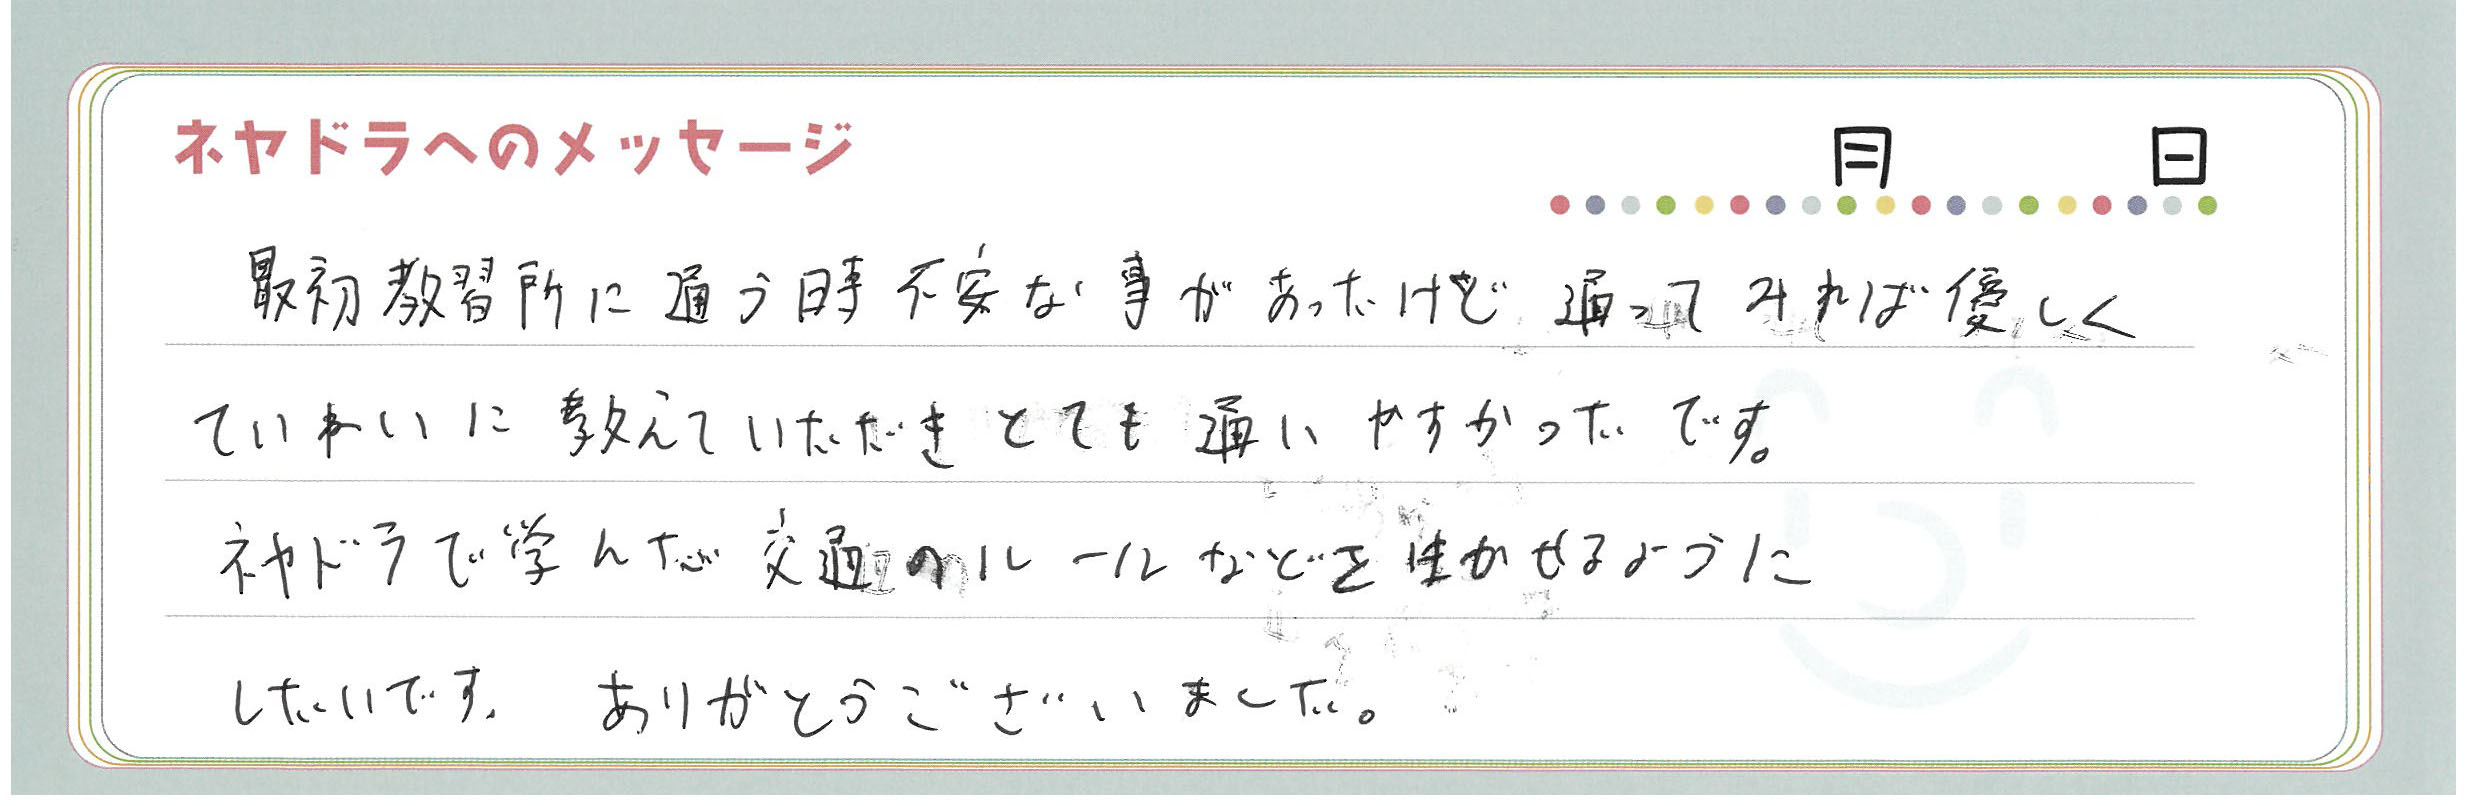 ネヤドラへのメッセージ
月 日
最初教習所に通う時不安な事があったけど通ってみれば優しく
ていねいに教えていただきとても通いやすかったです。
ネヤドラで学んだ交通のルールなどを生かせるように
したいです。ありがとうございました。